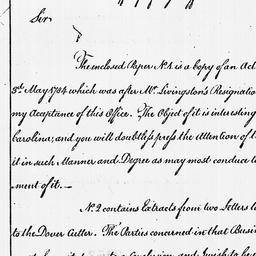 Sir
The enclosed Paper No. 1 is a copy of an Act
3d. May 1784 which was after Mr. Livingston's Resignatio
my Acceptance of this Office. The Object of it is interesting
Carolina; and you will doubtless press the Attention of
it in such Manner and Degree as may most conduce to
ment of it.—
No. 2 contains Extracts from two Letters
to the Dover Cutter. The Parties concerned in that Busi